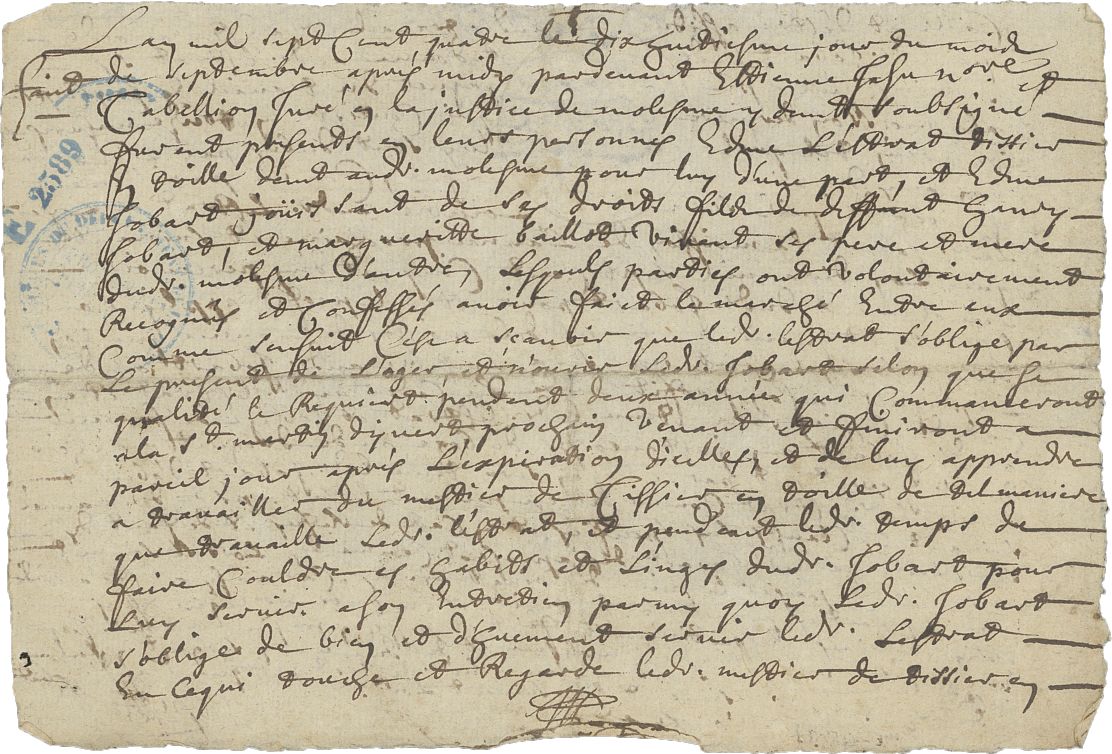 Lan mil sept Cent quatre le dix huitiesme jour du mois
de septembre apres midy pardevant Estienne Jasu nore et
fait
Tabellion Juré en la justice de molesme y demt soubsigne
furent presents en leurs personnes Edme Lestrat tissier
en toille demt audr. molesme pour luy d'une part, et Edme
Jobart jouissant de ses droits filz de deffunt Henry
Jobart, et margueritte baillot vivant ses pere et mere
dudr. molesme d'autre, Lesquels parties ont volontairement
Recognus et Confessés avoir fait le marché Entre eux
Comme sensuit C'est a scavoir que ledr. lestrat s'oblige par
Le present de Loger et nourir Ledr. Jobart selon que sa
qualité le Requiert pendent deux année qui Commanceront
a la St. martin d'yvert prochin venant et finiront a
pareil jour après L'expiration d'icelles, et de luy apprendre
a travailler du mestier de Tissier en toille de tel maniere
que travaille Ledr. lestrat, et pendent ledr. temps de
faire Couldre es habits et Linges dudr. Jobart pour
Luy servir a son Entretien parmy quoy Ledr. Jobart
s'oblige de bien et d'huement servir ledr. Lestrat
En Ce qui touche et Regarde ledr. mestier de tissier en
E 2589